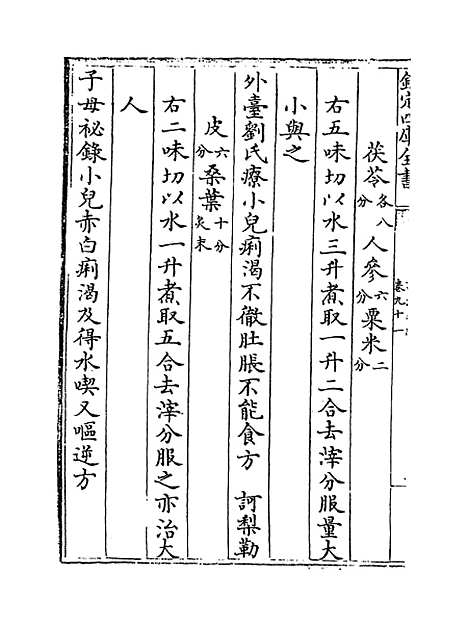 欽定四庫全書
卷九十一
茯苓各八分人參六分粟米二分
右五味切以水三升煮取一升二合去滓分服量大
小與之
外臺劉氏療小兒痢渴不徹肚脹不能食方　訶梨勒
皮六分桑葉十分炙末
右二味切以水一升煮取五合去滓分服之亦治大
人
子母祕錄小兒赤白痢渴及得水喫又嘔逆方